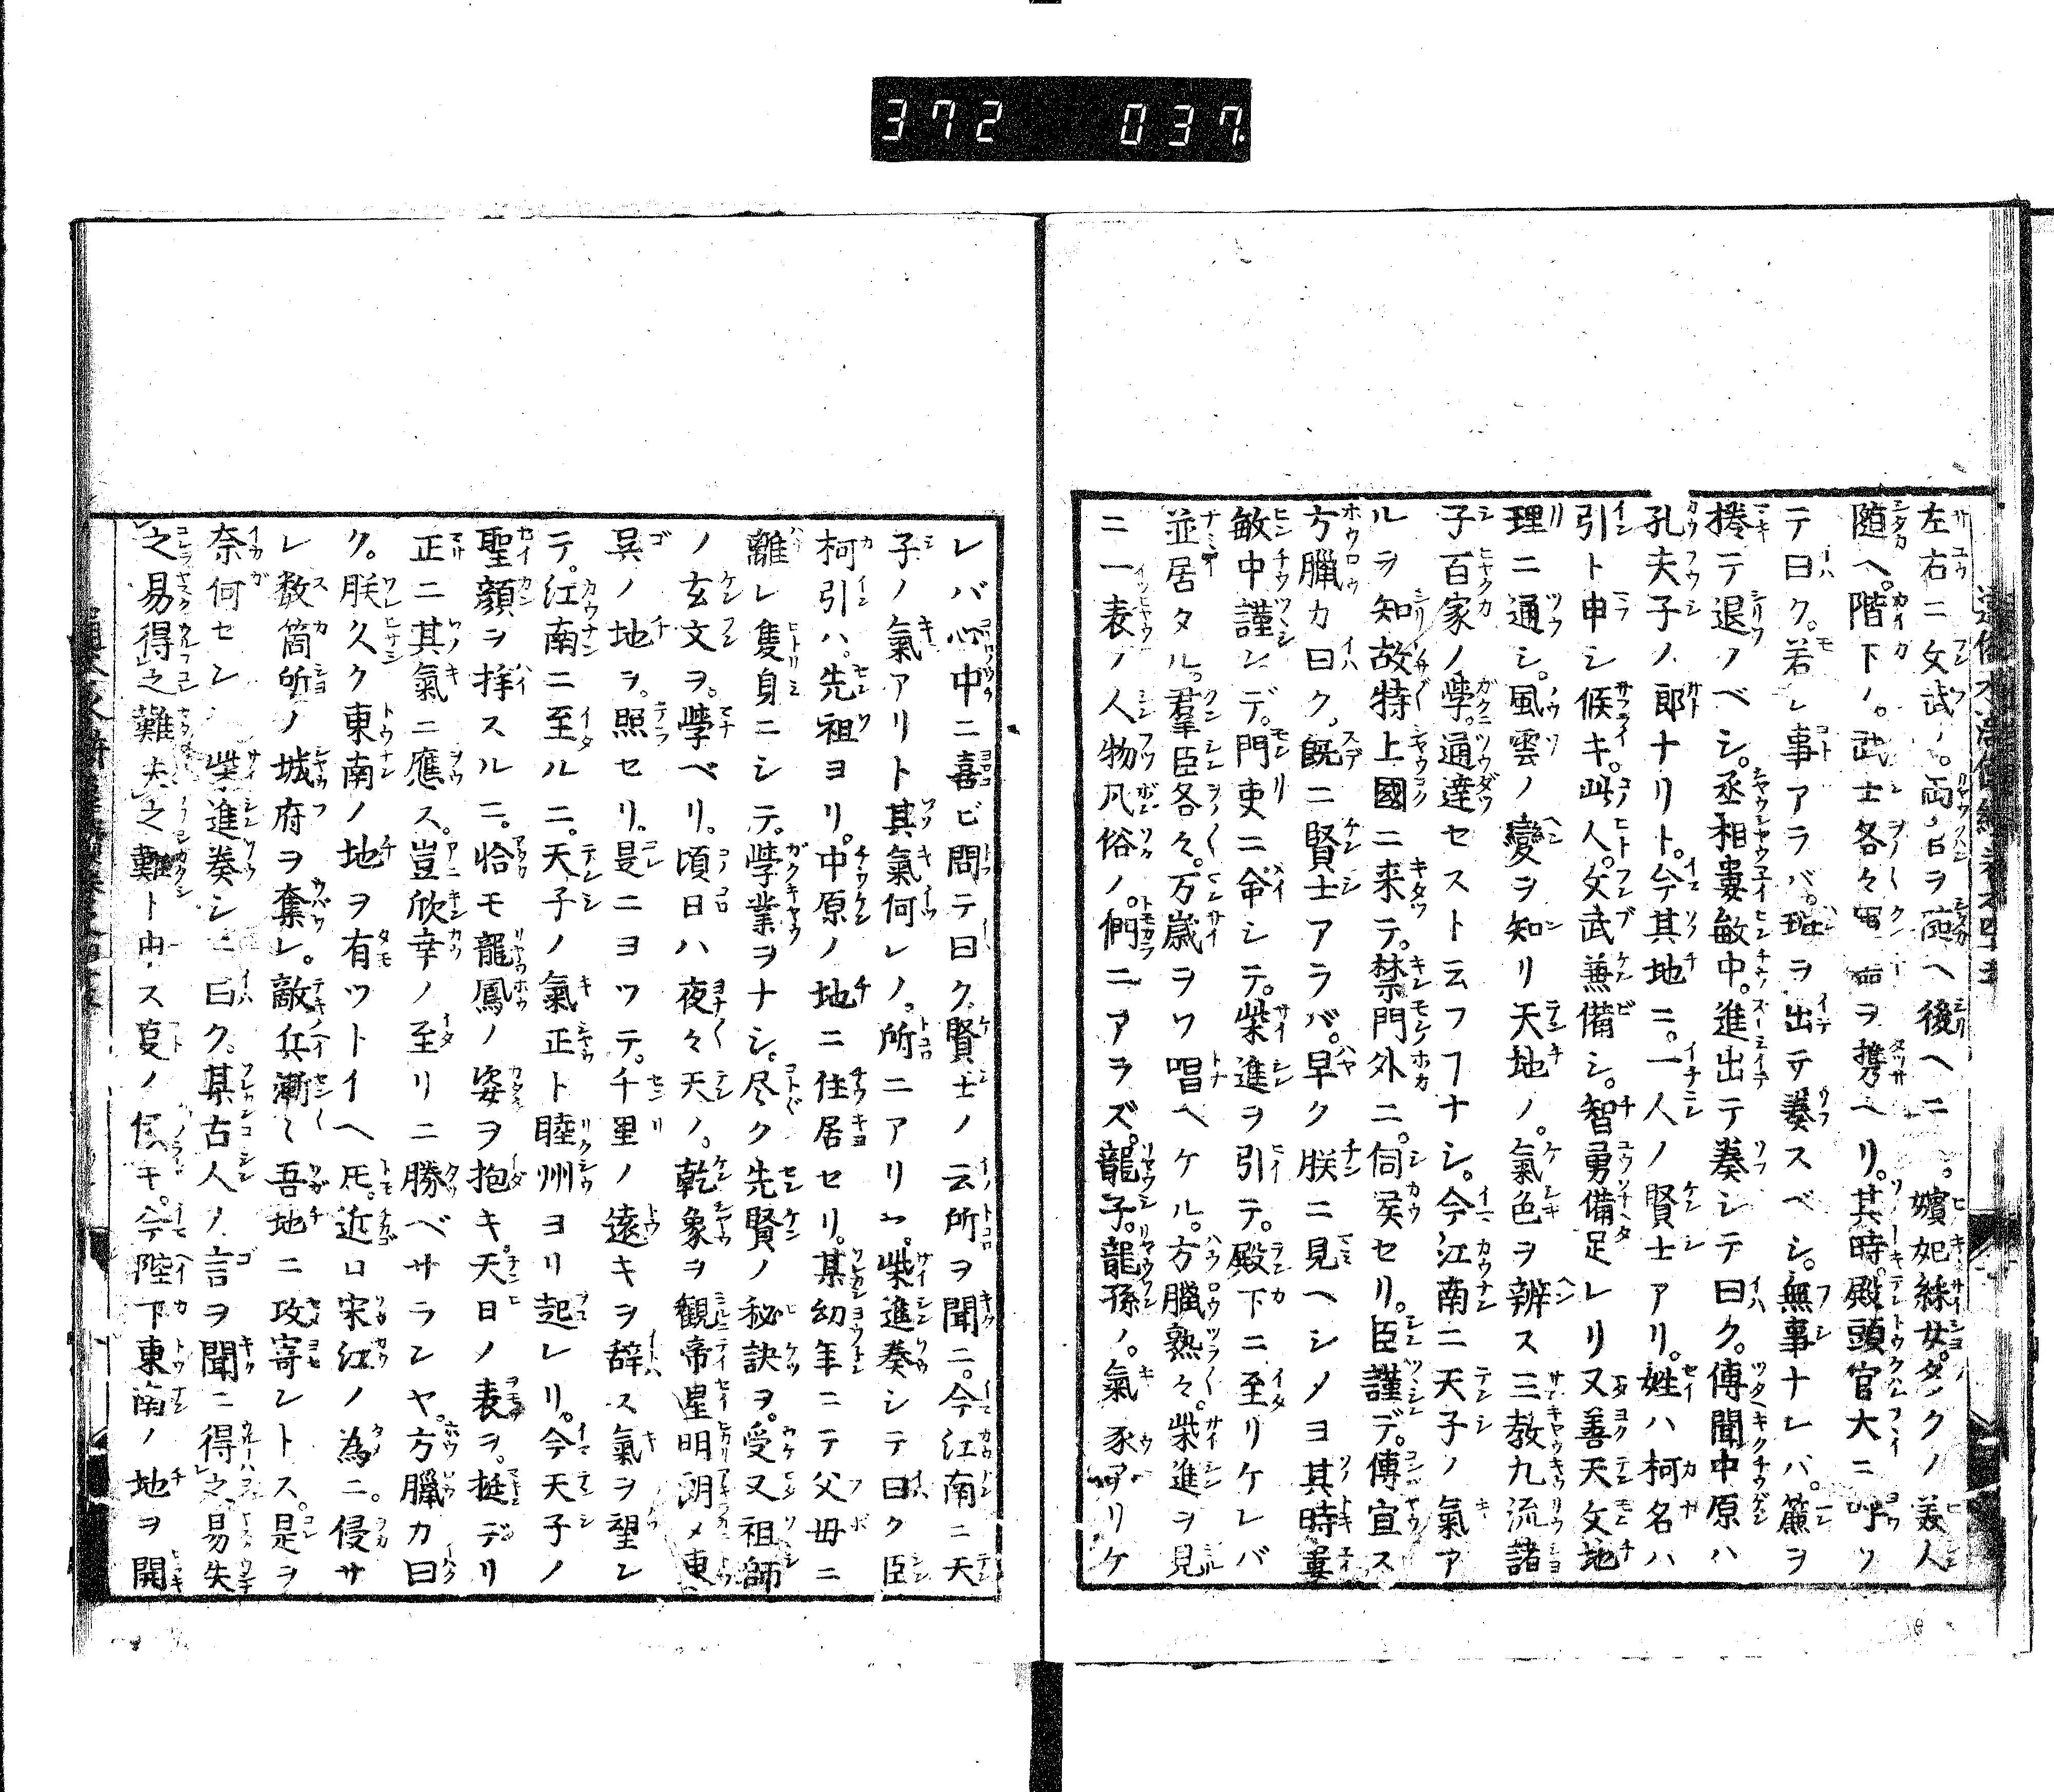 372 037
左右ニ文武ノ。両官ヲ随ヘ後ヘニ。嬪妃綵女。多クノ美人
随ヘ。階下ノ。武士各々ヲ携ヘリ。其時。殿頭官大ニ呼ツ
テ曰ク。若レ事アラバ。班ヲ出テ奏スベシ。無事ナレバ。簾ヲ
捲テ退ノベシ。丞相婁敏中。進出テ奏シテ曰ク。傳聞中原ハ
孔夫子ノ郷ナリト。今其地ニ。一人ノ賢士アリ。姓ハ柯名ハ
引ト申シ候キ。此人。文武兼備シ。智勇備足レリ又善天文地
理ニ通シ。風雲ノ變ヲ知リ天地ノ。氣色ヲ辨ス三教九流諸
子百家ノ。學。通達セストニフナシ。今江南ニ天子ノ氣ア
ルヲ知故特上國ニ来テ。禁門外ニ。伺矦セリ。臣謹デ。傳宣ス
方臘カ曰ク。既ニ賢士アラバ。早ク朕ニ見ヘシメヨ其時婁
敏中謹ンデ。門吏ニ命シテ。柴進ヲ引テ。殿下ニ至リケレバ
並居タル。羣臣各々。万歳ヲソ唱ヘケル。方臘熟々。柴進ヲ見
ニ一表ノ人物凡俗ノ。們ニアヲズ。龍子。龍孫ノ。氣アリケ
レバ心中ニ喜ビ問テ曰ク賢士ノ云所ヲ聞ニ。今江南ニ天
子ノ氣アリト其氣何レノ。所ニアリヤ。柴進奏シテ曰ク臣
柯引ハ。先祖ヨリ。中原ノ地ニ住居セリ。某幼年ニテ父母ニ
離レ隻身ニシテ。學業ヲナシ。尽ク先賢ノ秘訣ヲ。受又祖師
ノ玄文ヲ。學ベリ。頃日ハ夜々天ノ。乾象ヲ観帝星明朗メ東
呉ノ地ヲ。照セリ。是ニヨツテ。千里ノ遠キヲ辞ス氣ヲ望ン
テ。江南ニ至ルニ。天子ノ氣正ト睦州ヨリ起レリ。今天子ノ
聖顔ヲ拝スルニ。恰モ龍鳳ノ姿ヲ抱キ。天日ノ表ヲ。挺デリ
正ニ其氣ニ應ス。豈欣幸ノ至リニ勝ベサランヤ。方臘カ曰
ク。朕久ク東南ノ地ヲ有ツトイヘ𪜈。近ロ宋江ノ為ニ。侵サ
レ数箇所ノ城府ヲ奪レ。敵兵漸〻吾地ニ攻寄レトス。是ヲ
奈何セン柴進奏シニ曰ク。某古人ノ言ヲ聞ニ得之易失
之易得之難失之難ト申ス夏ノ候モ。今陛下東南ノ地ヲ開